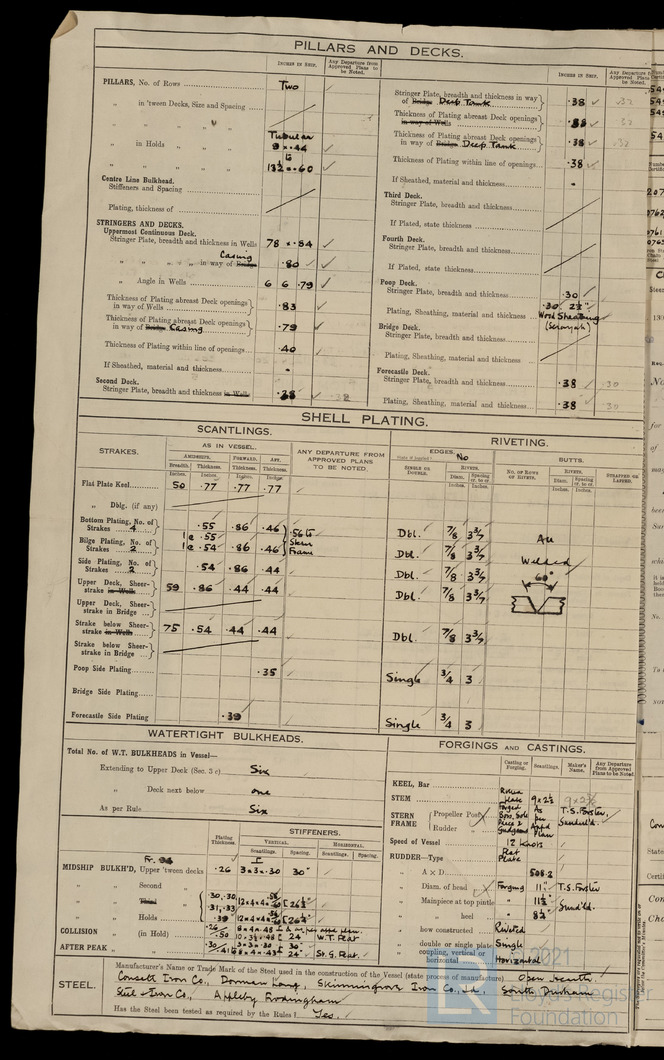 PILLARS AND DECKS.
INCHES IN SHIP.
Any Departure from Approved Plans to be Noted.
PILLARS, No. of Rows Two
„ in 'tween Decks, Size and Spacing
„ in Holds Tubular
9 × .44
to
13½ × .60
Centre Line Bulkhead.
Stiffeners and Spacing
Plating, thickness of
STRINGERS AND DECKS.
Uppermost Continuous Deck.
Stringer Plate, breadth and thickness in Wells 78 × .84
„ „ „ „ in way of Bridge Casing .80
„ Angle in Wells 6 6 .79
Thickness of Plating abreast Deck openings in way of Wells .83
Thickness of Plating abreast Deck openings in way of Bridge Casing .79
Thickness of Plating within line of openings .40
If Sheathed, material and thickness -
Second Deck.
Stringer Plate, breadth and thickness in Wells .38
INCHES IN SHIP.
Any Departure from Approved Plans to be Noted.
Stringer Plate, breadth and thickness in way of Bridge Deep Tank .38
Thickness of Plating abreast Deck openings in way of Wells .38
Thickness of Plating abreast Deck openings in way of Bridge Deep Tank .38
Thickness of Plating within line of openings .38
If Sheathed, material and thickness -
Third Deck.
Stringer Plate, breadth and thickness
If Plated, state thickness
Fourth Deck.
Stringer Plate, breadth and thickness
If Plated, state thickness
Poop Deck.
Stringer Plate, breadth and thickness .30
Plating, Sheathing, material and thickness .30 2½" Wood Sheathing (Serayah)
Bridge Deck.
Stringer Plate, breadth and thickness
Plating, Sheathing, material and thickness
Forecastle Deck.
Stringer Plate, breadth and thickness .38 .30
Plating, Sheathing, material and thickness .38 .30
SHELL PLATING.
SCANTLINGS.
RIVETING.
STRAKES.
AS IN VESSEL.
AMIDSHIPS. FORWARD. AFT.
Breadth. Thickness. Thickness. Thickness.
Inches. Inches. Inches. Inches.
ANY DEPARTURE FROM APPROVED PLANS TO BE NOTED
EDGES.
No
SINGLE OR DOUBLE.
RIVETS.
Diam. Spacing cr. to cr.
Inches. Inches.
BUTTS.
No. OF ROWS OF RIVETS.
RIVETS.
Diam. Spacing cr. to cr.
Inches. Inches.
STRAPPED OR LAPPED.
Flat Plate Keel 50 .77 .77 .77
„ Dblg. (if any)
Bottom Plating, No. of Strakes 4 .55 .86 .46 Dbl. 7/8 3 3/7
Bilge Plating, No. of Strakes 2 1 @ .55 1 @ .54 .86 .46 .56 to Stern Frame Dbl. 7/8 3 3/7
Side Plating, No. of Strakes 2 .54 .86 .44 Dbl. 7/8 3 3/7
Upper Deck, Sheerstrake in Wells 59 .86 .44 .44 Dbl. 7/8 3 3/7
Upper Deck, Sheerstrake in Bridge
Strake below Sheerstrake in Wells 75 .54 .44 .44 Dbl. 7/8 3 3/7
Strake below Sheerstrake in Bridge
Poop Side Plating .35 Single 3/4 3
Bridge Side Plating
Forecastle Side Plating .39 Single 3/4 3
All
Welded
60°
WATERTIGHT BULKHEADS.
Total No. of W.T. BULKHEADS in Vessel—
Extending to Upper Deck (Sec. 3 c) Six
„ Deck next below one
As per Rule Six
Plating Thickness.
STIFFENERS.
VERTICAL. HORIZONTAL.
Scantlings. Spacing. Scantlings. Spacing.
MIDSHIP BULKH'D, Upper 'tween decks .26 3 × 3 × .30 30"
„ „ Second „
„ „ Third „
„ „ Holds
COLLISION „ (in Hold) W.T. Flat
AFTER PEAK „ St. G. Flat.
FORGINGS AND CASTINGS.
Casting or Forging.
Scantlings.
Maker's Name.
Any Departure from Approved Plans to be Noted
KEEL, Bar
STEM Rolled Plate 9 × 2½
STERN FRAME { Propeller Post
Rudder „
Forged Boss, Sole Piece & Gudgeons As per Appd Plan T.S. Forster, Sunderl'd.
Speed of Vessel 12 Knots
RUDDER—Type Flat Plate
„ A × D 508.2
„ Diam. of head Forging 11" T.S. Forster
„ Mainpiece at top pintle „ 11½" Sund'ld.
„ „ heel „ 8½"
„ how constructed Riveted
„ double or single plate Single
„ coupling, vertical or horizontal Horizontal
STEEL.
Manufacturer's Name or Trade Mark of the Steel used in the construction of the Vessel (state process of manufacture) Open Hearth.
Consett Iron Co., Dorman Long, Skinningrove Iron Co., Ld, South Durham
Steel & Iron Co., Appleby Frodingham
Has the Steel been tested as required by the Rules? Yes.
© 2021
LR
Lloyd's Register
Foundation